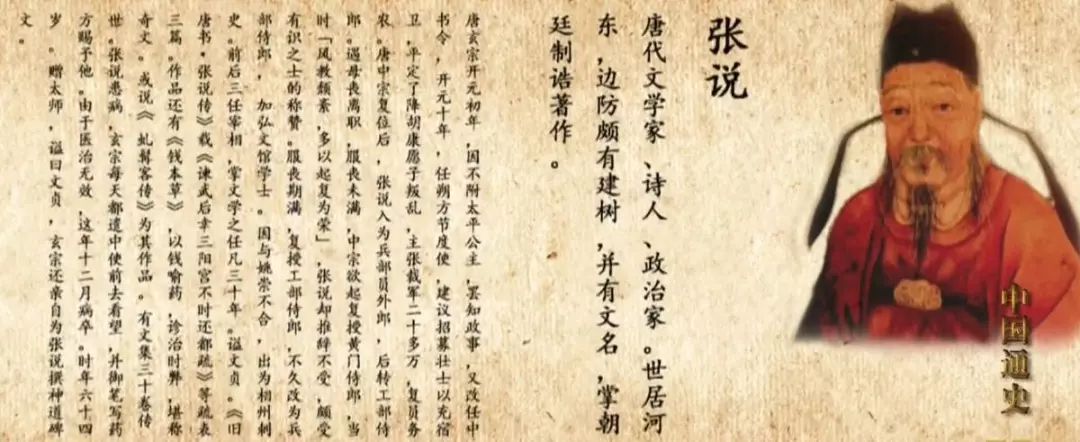 张说
唐代文学家、诗人、政治家。世居河
东，边防颇有建树，并有文名，掌朝
廷制诰著作。
唐玄宗开元初年，因不附太平公主，罢知政事，又改任中
书令，开元十年，任朔方节度使，建议招募壮士以充宿
卫，平定了降胡康愿子叛乱，主张裁军二十多万，复员务
农。唐中宗复位后，张说入为兵部员外郎，后转工部侍
郎。遇母丧离职，服丧未满，中宗欲起复授黄门侍郎，当
时「风教颓紊，多以起复为荣」，张说却推辞不受，颇受
有识之士的称赞。服丧期满，复授工部侍郎，不久改为兵
部侍郎，加弘文馆学士。因与姚崇不合，出为相州刺
史。前后三任宰相，掌文学之任凡三十年。谥文贞。《旧
唐书·张说传》载《谏武后幸三阳宫不时还都疏》等疏表
三篇。作品还有《钱本草》，以钱喻药，诊治时弊，堪称
奇文。或说《虬髯客传》为其作品。有文集三十卷传
世。张说患病，玄宗每天都遣中使前去看望，并御笔写药
方赐予他。由于医治无效，这年十二月病卒。时年六十四
岁。赠太师，谥曰文贞，玄宗还亲自为张说撰神道碑
文。
中国通史